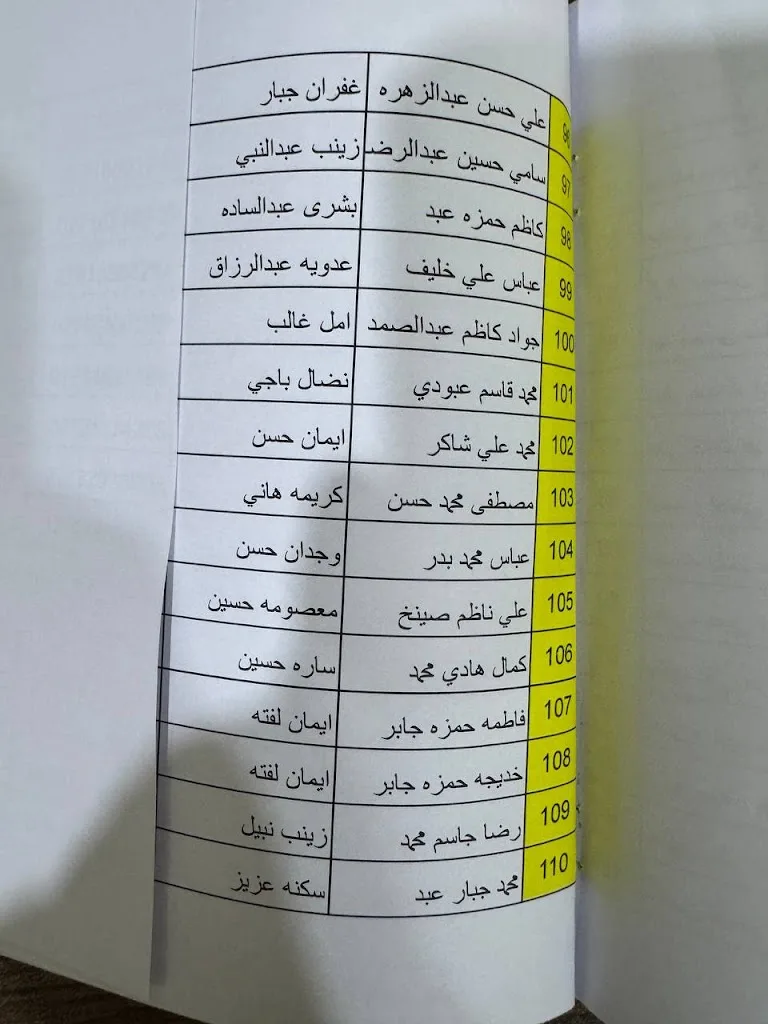 96 علي حسن عبدالزهره غفران جبار
97 سامي حسين عبدالرضا زينب عبدالنبي
98 كاظم حمزه عبد بشرى عبدالساده
99 عباس علي خليف عدويه عبدالرزاق
100 جواد كاظم عبدالصمد امل غالب
101 محمد قاسم عبودي نضال باجي
102 محمد علي شاكر ايمان حسن
103 مصطفى محمد حسن كريمه هاني
104 عباس محمد بدر وجدان حسن
105 علي ناظم صينخ معصومه حسين
106 كمال هادي محمد ساره حسين
107 فاطمه حمزه جابر ايمان لفته
108 خديجه حمزه جابر ايمان لفته
109 رضا جاسم محمد زينب نبيل
110 محمد جبار عبد سكنه عزيز